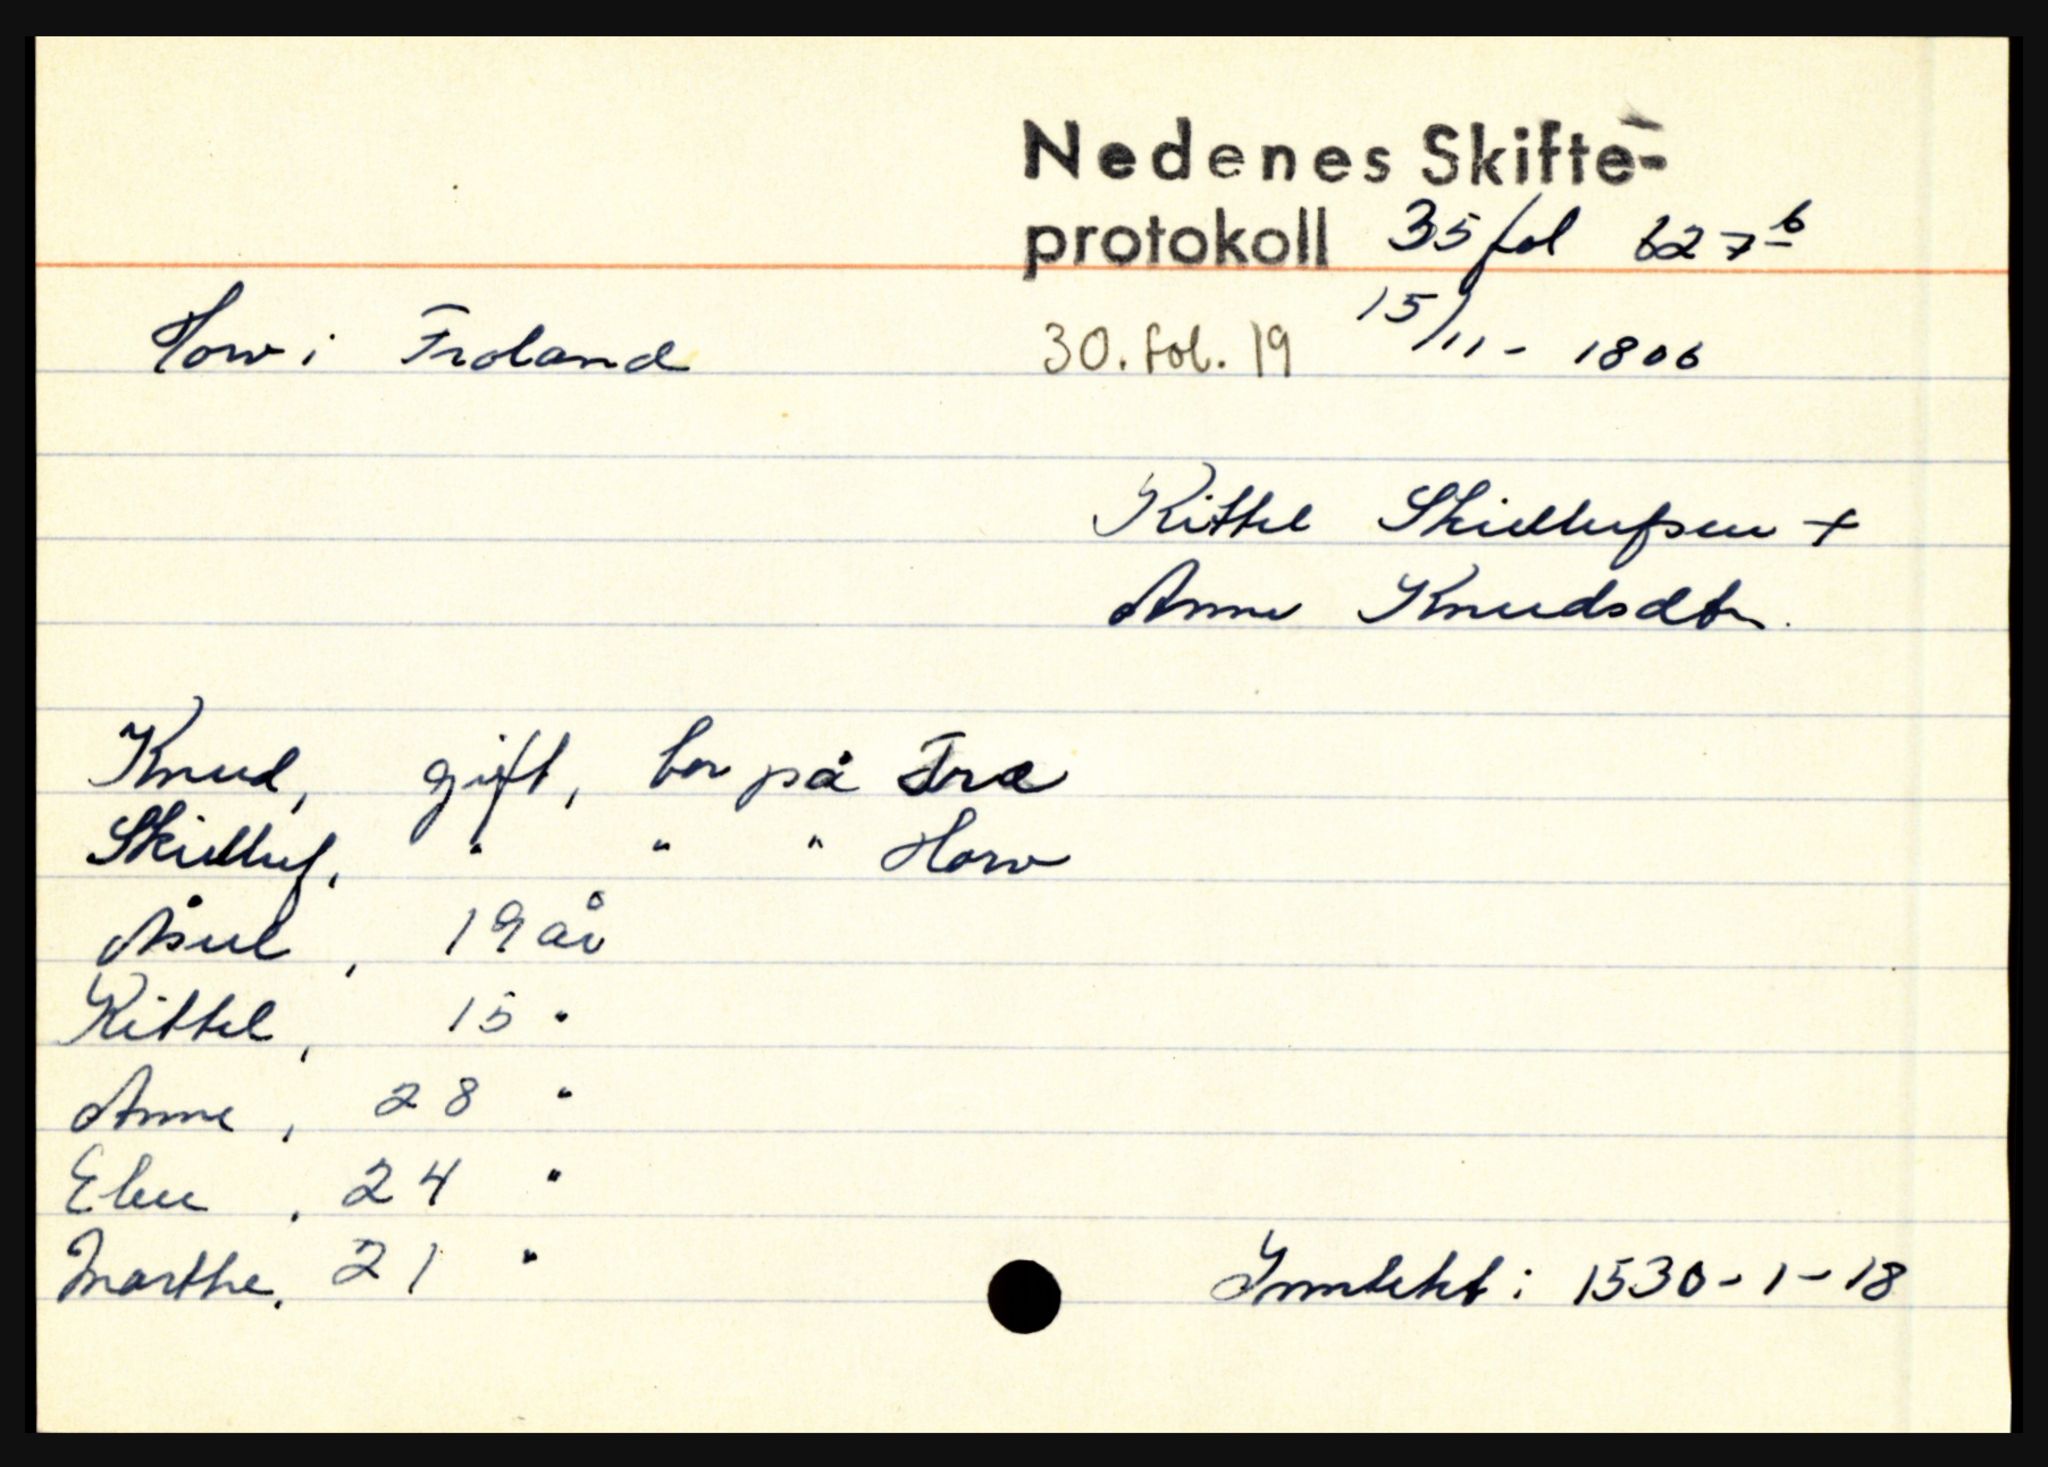 Nedenes Skifte-
protokoll 35 fol 627 b
Horv i Froland 30. fol. 19 15/11 - 1806
Kittel Skiellufsen +
Anne Knudsdtr.
Knud, gift, bor på Træ
Skielluf, " " " Horv
Åsul, 19 år
Kittel, 15 "
Anne, 28 "
Elen, 24 "
Marthe, 21 "
Inntekt: 1530-1-18